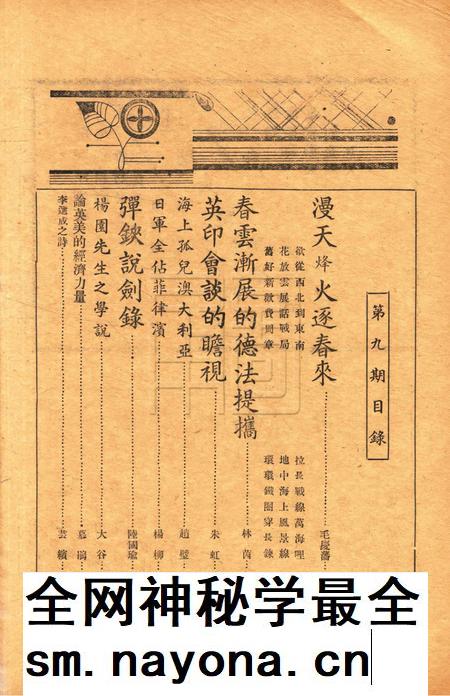 第九期目錄
漫天烽火逐春來
欲從西北到東南
花放雲展話戰局
舊好新歡費周章
拉長戰線萬海哩
地中海上風景線
環環鐵圈穿長鍊
春雲漸展的德法提攜……林茵
英印會談的瞻視……朱虹
海上孤兒澳大利亞……趙璧
日軍全佔菲律濱……楊柳
彈鋏說劍錄……陸國瑜
楊園先生之學說……大谷
論英美的經濟力量……慕鵑
成之詩……芸
全网神秘学最全
sm.nayona.cn